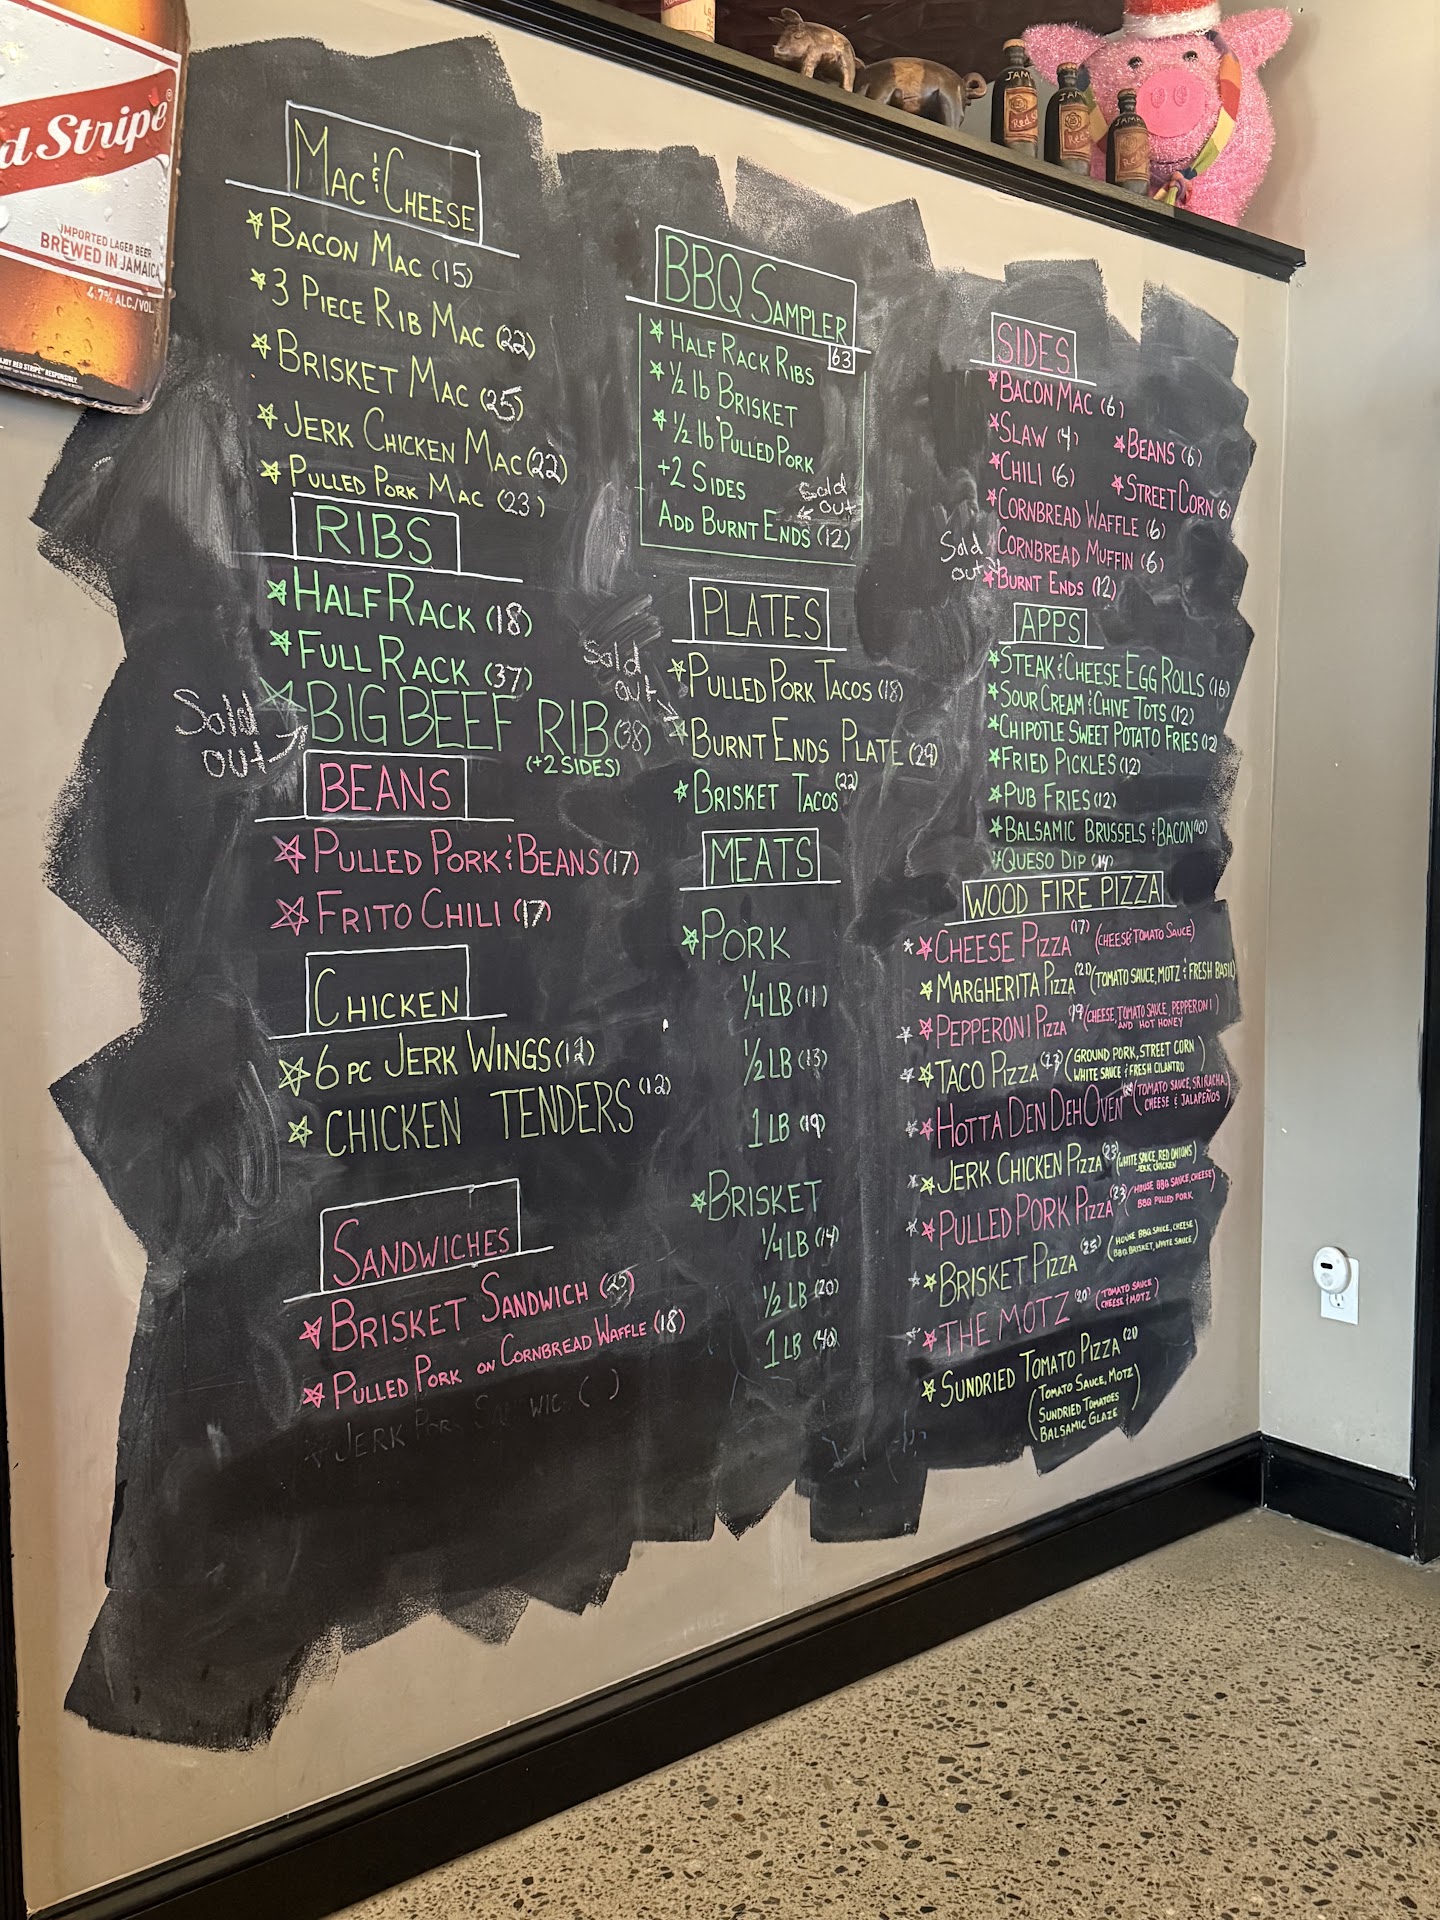 d Stripe
IMPORTED LAGER BEER
BREWED IN JAMAICA
4.7% ALC./VOL.
ENJOY RED STRIPE RESPONSIBLY.
MAC & CHEESE
BACON MAC (15)
3 PIECE RIB MAC (22)
BRISKET MAC (25)
JERK CHICKEN MAC (22)
PULLED PORK MAC (23)
RIBS
HALF RACK (18)
FULL RACK (37)
Sold out
BIG BEEF RIB (38)
(+2 SIDES)
BEANS
PULLED PORK & BEANS (17)
FRITO CHILI (17)
CHICKEN
6 PC JERK WINGS (12)
CHICKEN TENDERS (12)
SANDWICHES
BRISKET SANDWICH (25)
PULLED PORK ON CORNBREAD WAFFLE (18)
JERK PORK SANDWICH ( )
BBQ SAMPLER
63
HALF RACK RIBS
1/2 lb BRISKET
1/2 lb PULLED PORK
+2 SIDES
Sold out
ADD BURNT ENDS (12)
PLATES
PULLED PORK TACOS (18)
Sold out
BURNT ENDS PLATE (29)
BRISKET TACOS (22)
MEATS
PORK
1/4 LB (11)
1/2 LB (13)
1 LB (19)
BRISKET
1/4 LB (14)
1/2 LB (20)
1 LB (40)
SIDES
BACON MAC (6)
SLAW (4)
BEANS (6)
CHILI (6)
STREET CORN (6)
CORNBREAD WAFFLE (6)
CORNBREAD MUFFIN (6)
Sold out
BURNT ENDS (12)
APPS
STEAK & CHEESE EGG ROLLS (16)
SOUR CREAM & CHIVE TOTS (12)
CHIPOTLE SWEET POTATO FRIES (12)
FRIED PICKLES (12)
PUB FRIES (12)
BALSAMIC BRUSSELS & BACON (10)
QUESO DIP (14)
WOOD FIRE PIZZA
CHEESE PIZZA (17) (CHEESE & TOMATO SAUCE)
MARGHERITA PIZZA (20) (TOMATO SAUCE, MOTZ & FRESH BASIL)
PEPPERONI PIZZA (19) (CHEESE, TOMATO SAUCE, PEPPERONI AND HOT HONEY
TACO PIZZA (23) (GROUND PORK, STREET CORN WHITE SAUCE & FRESH CILANTRO)
HOTTA DEN DEH OVEN (TOMATO SAUCE, SRIRACHA, CHEESE & JALAPEÑOS)
JERK CHICKEN PIZZA (23) (WHITE SAUCE, RED ONIONS JERK CHICKEN)
PULLED PORK PIZZA (23) (HOUSE BBQ SAUCE, CHEESE BBQ PULLED PORK)
BRISKET PIZZA (25) (HOUSE BBQ SAUCE, CHEESE BBQ BRISKET, WHITE SAUCE)
THE MOTZ (20) (TOMATO SAUCE CHEESE & MOTZ)
SUNDRIED TOMATO PIZZA (21)
(TOMATO SAUCE, MOTZ
SUNDRIED TOMATOES
BALSAMIC GLAZE)